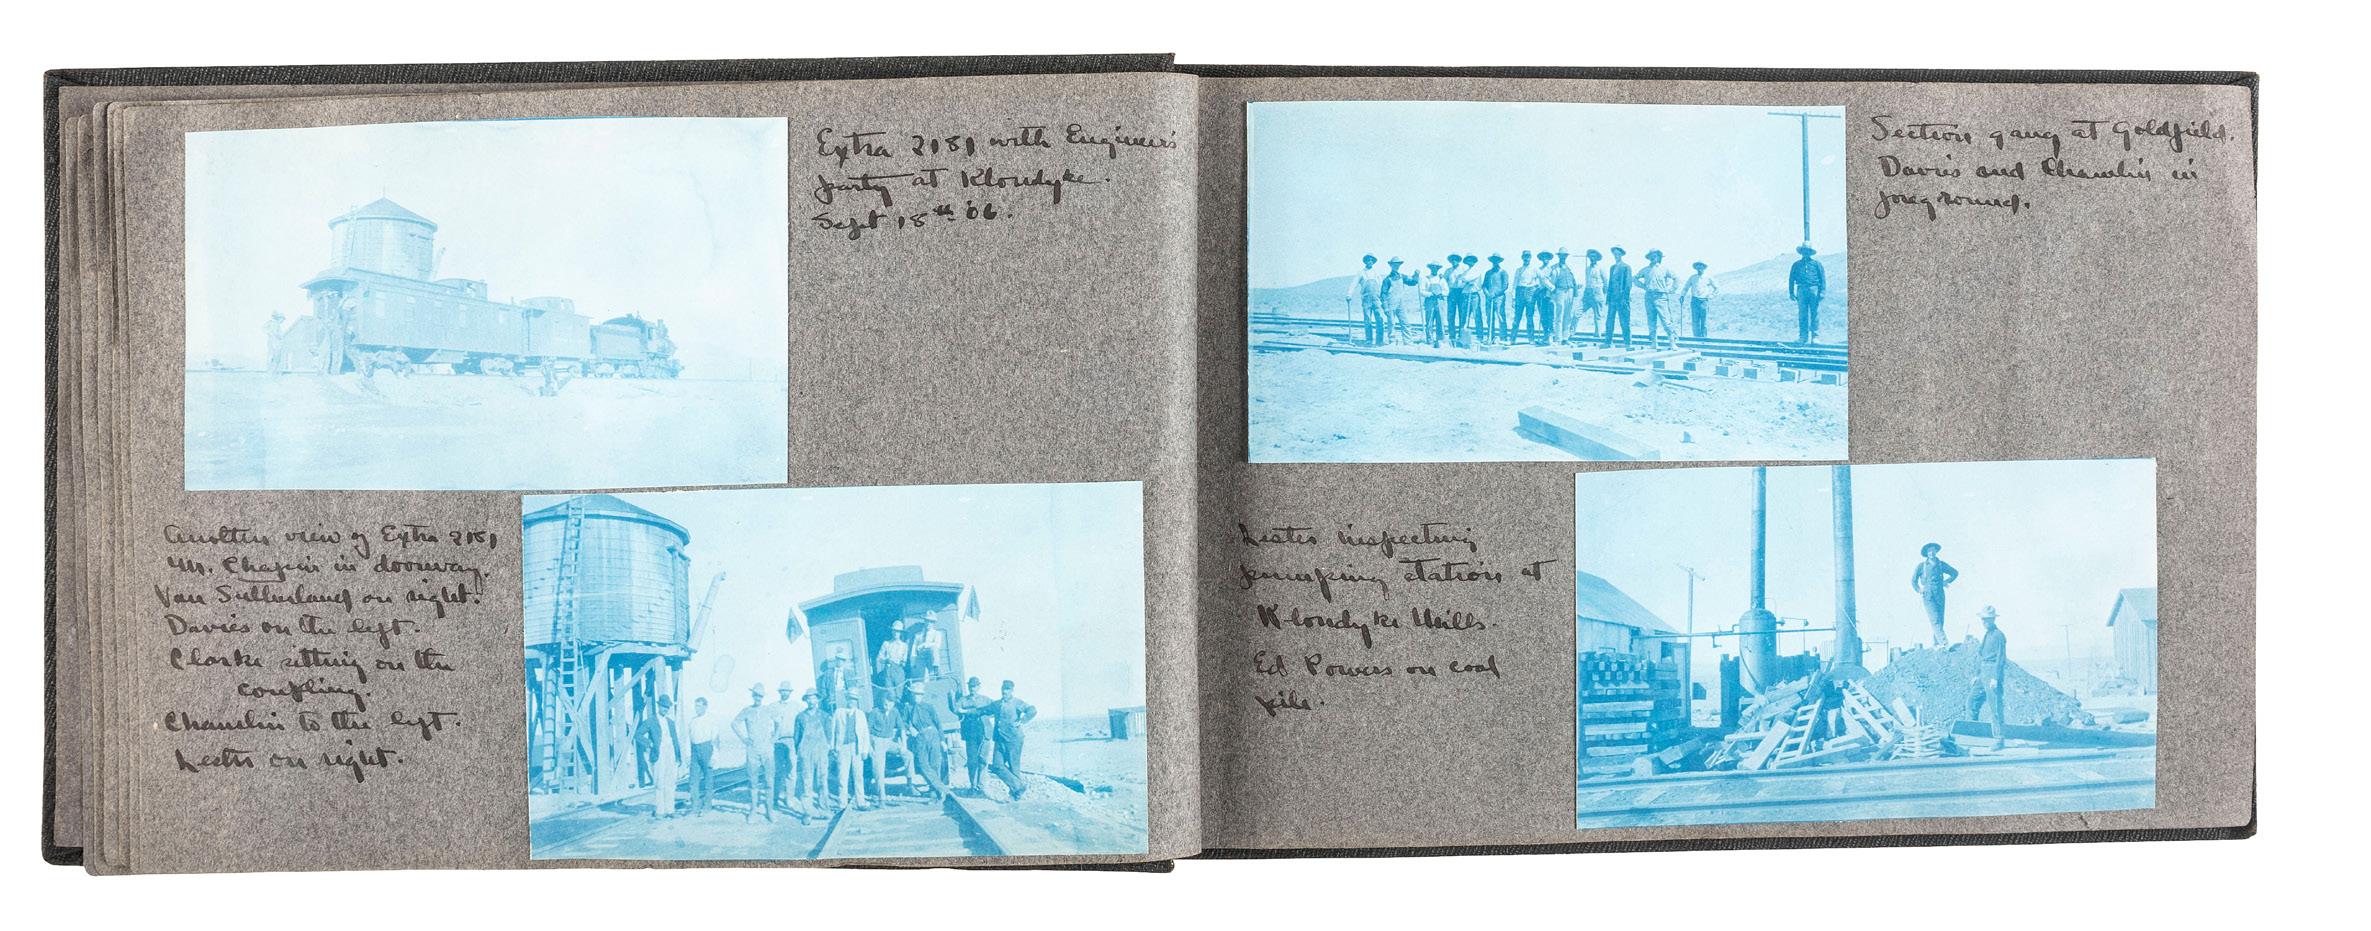 Extra 2181 with Engineers
party at Klondyke.
Sept 18th '06.
Another view of Extra 2181
Mr. Chapin in doorway.
Van Sutherland on right.
Davies on the left.
Clarke sitting on the
coupling.
Chamlin to the left.
Lester on right.
Section gang at Goldfield.
Davies and Chamlin in
foreground.
Lester inspecting
pumping station at
Klondyke Wells.
Ed Powers on coal
pile.